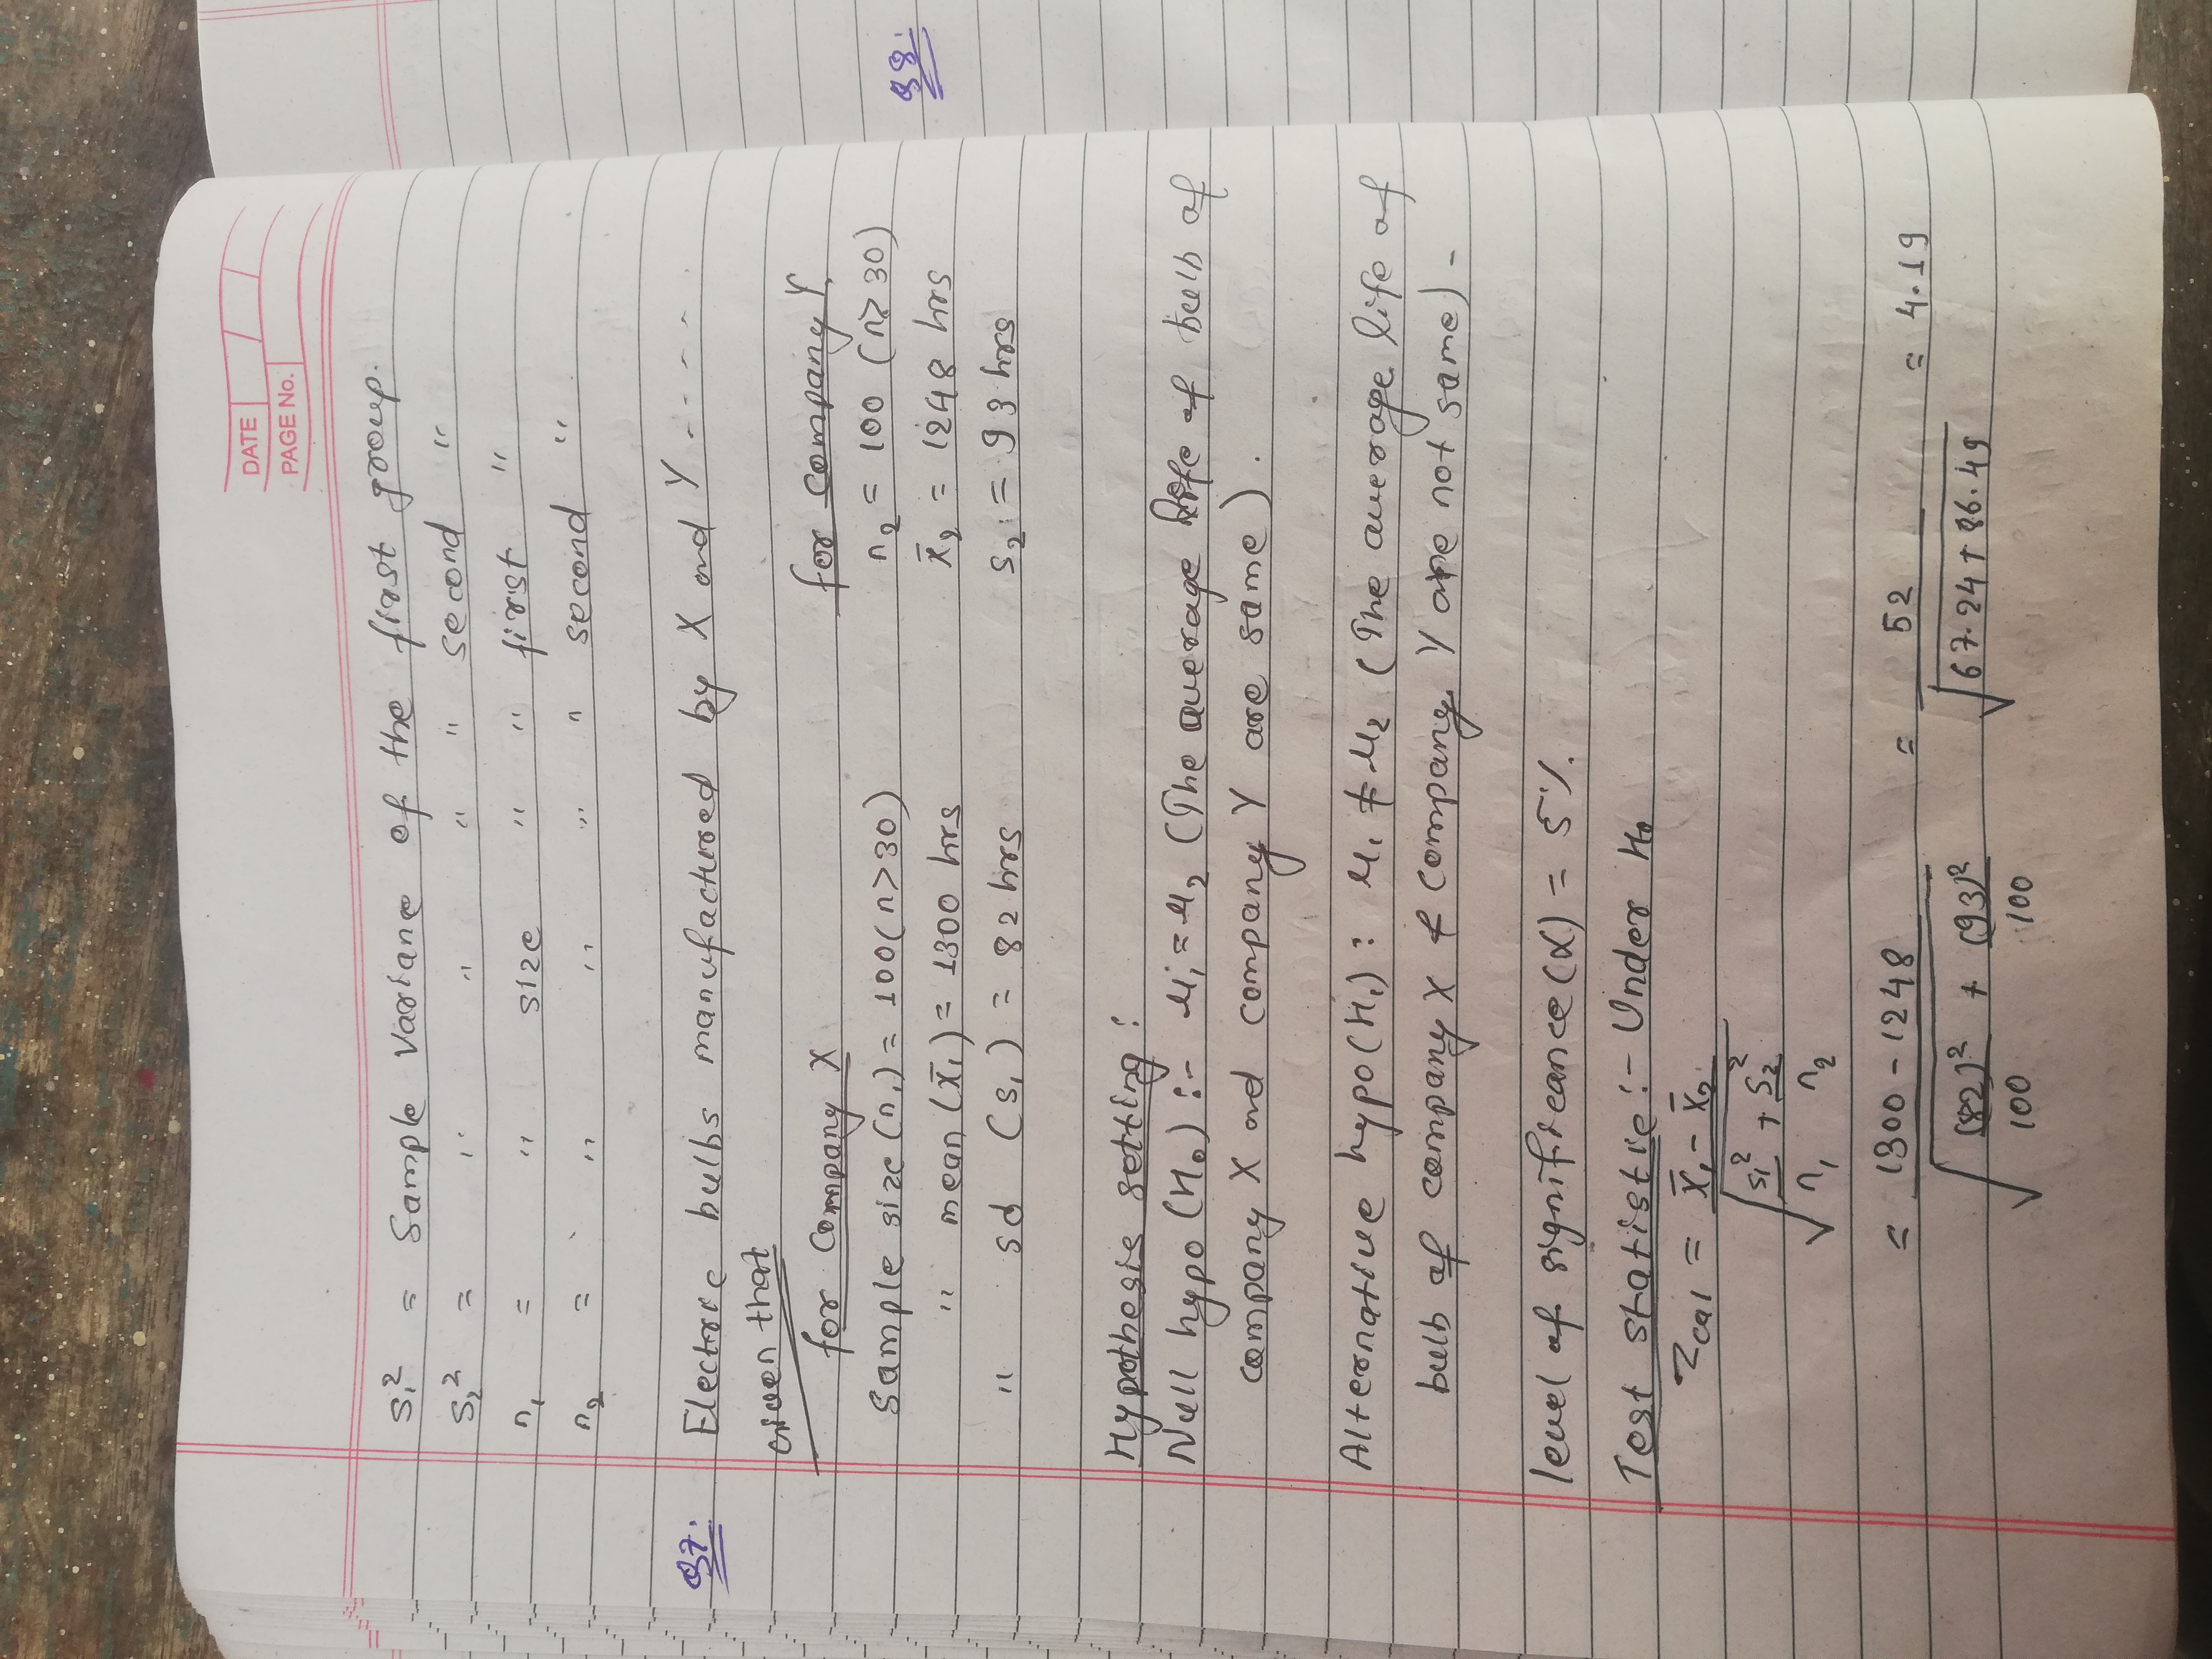 DATE
PAGE No.
S₁² = Sample Variane of the first group.
S₂² = " " " " second "
n₁ = " size " " first "
n₂ = " " " " second "
Q7. Electric bulbs manufactured by X and Y -----
Given that
for Company X for company Y
Sample size (n₁) = 100 (n>30) n₂ = 100 (n≥30)
" mean (x̄₁) = 1300 hrs x̄₂ = 1248 hrs
" sd (s₁) = 82 hrs s₂ = 93 hrs
Q8.
Hypothesis setting :
Null hypo (H₀) :- μ₁ = μ₂ (The average life of bulb of
company X and company Y are same).
Alternative hypo (H₁) : μ₁ ≠ μ₂ (The average life of
bulb of company X & Company Y are not same) -
level of significance (α) = 5%.
Test statistic :- Under H₀
Zcal = x̄₁ - x̄₂
√ s₁²/n₁ + s₂²/n₂
= 1300 - 1248 = 52 = 4.19
√ (82)²/100 + (93)²/100 √ 67.24 + 86.49